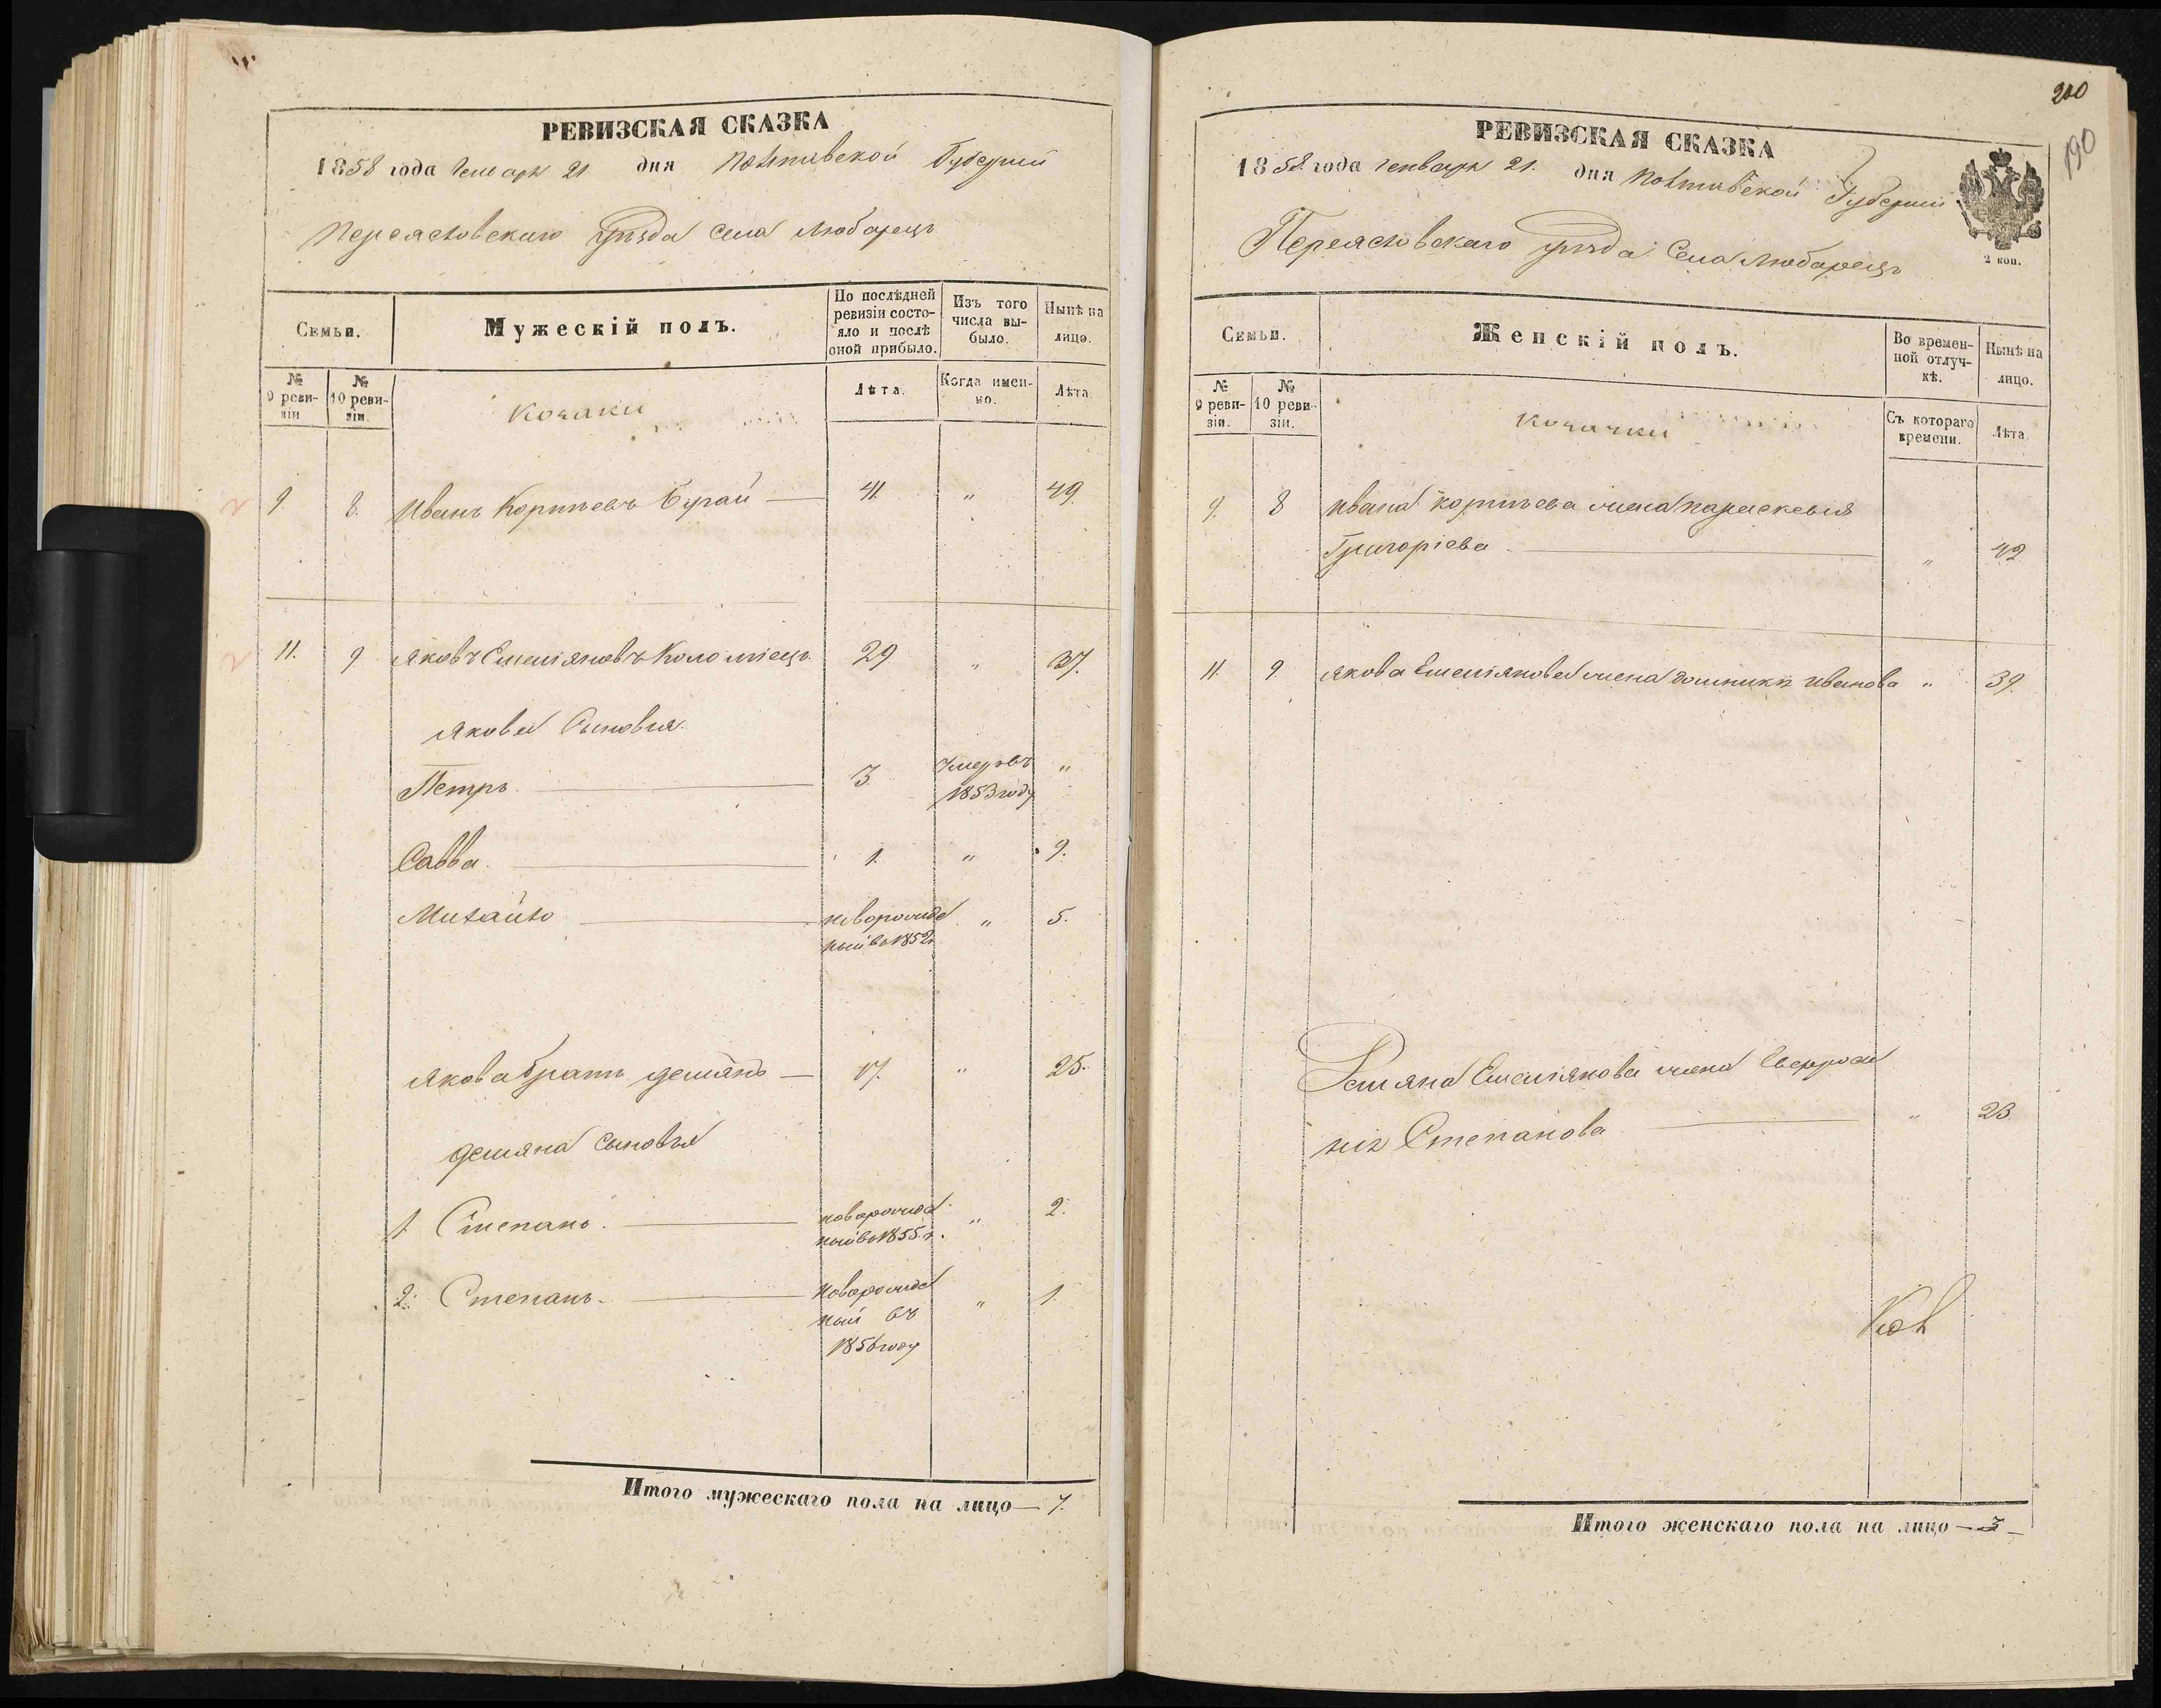 РЕВИЗСКАЯ СКАЗКА
1858 года Генваря 21 дня Полтавской Губернии
Переясловскаго уѣзда села Любарецъ
Семьи.
Мужескій полъ.
По послѣдней ревизіи состояло и послѣ оной прибыло.
Изъ того числа выбыло.
Нынѣ на лицо.
№ 9 ревизіи
№ 10 ревизіи.
Козаки
Лѣта.
Когда именно.
Лѣта
9. 8. Иванъ Корнѣевъ Бурай — 41. " 49.
11. 9 Яковъ Емеліяновъ Коломіецъ. 29 " 37.
Якова Сыновья.
Петръ. 3 Умеръ въ "
1853 году
Савва. 1. " 9.
Михайло новорожде " 5.
ный въ 1852 г.
Якова братъ Демянъ — 17. " 25.
Демяна Сыновья
1 Степанъ. новорожде " 2.
ный въ 1855. г.
2. Степанъ. новорожде " 1.
ный въ
1856 году
Итого мужескаго пола на лицо — 7.
200
190
РЕВИЗСКАЯ СКАЗКА
1858 года генваря 21. дня Полтавской Губернии
Переясловскаго уѣзда Села Любарецъ
2 коп.
Семьи.
Женскій полъ.
Во временной отлучкѣ.
Нынѣ на лицо.
№ 9 ревизіи.
№ 10 ревизіи.
Козачки
Съ котораго времени.
Лѣта.
9. 8 Ивана Корнѣева жена Параскевія
Григоріева " 42
11. 9. Якова Емеліянова жена Домникія Иванова " 39.
Демяна Емеліянова жена Евфроси
нія Степанова " 23.
Итого женскаго пола на лицо — 3 —